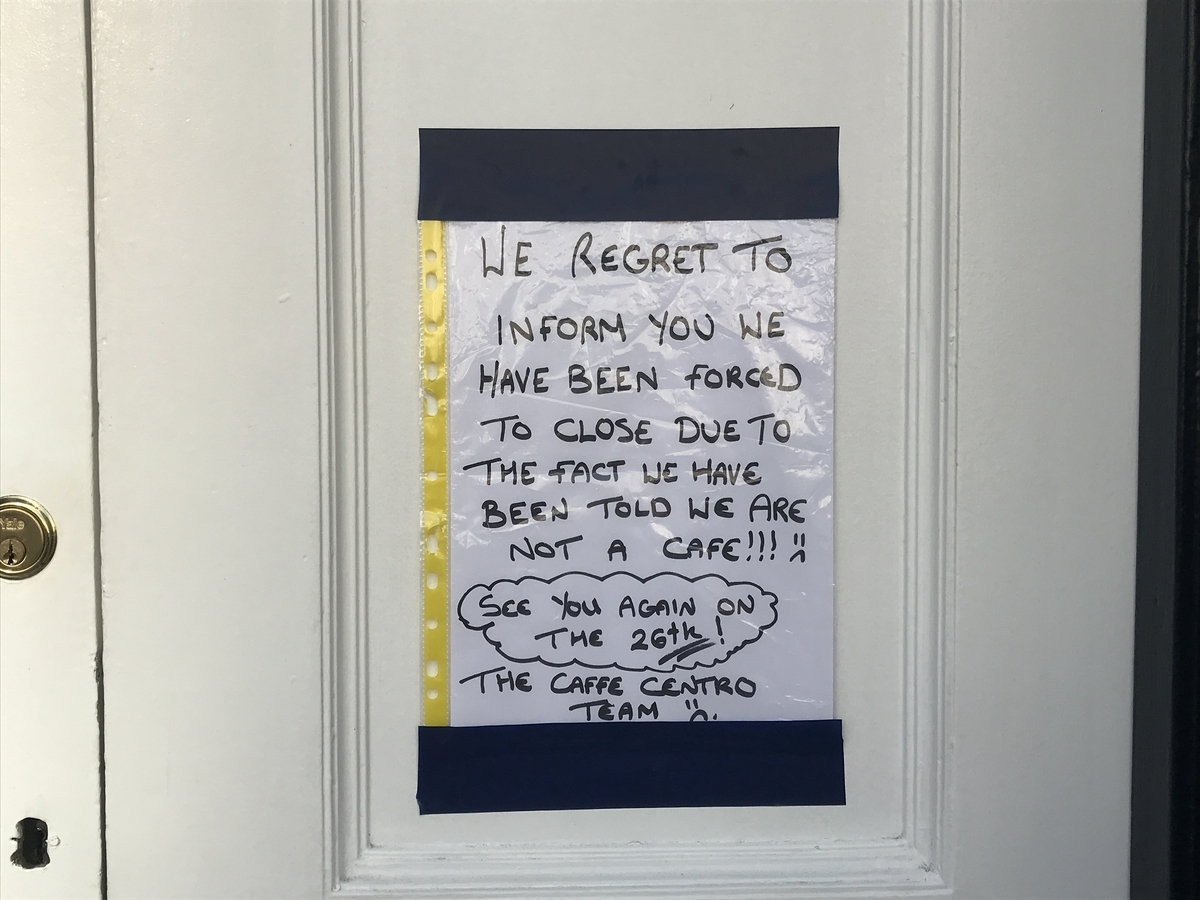 WE REGRET TO
INFORM YOU WE
HAVE BEEN FORCED
TO CLOSE DUE TO
THE FACT WE HAVE
BEEN TOLD WE ARE
NOT A CAFE!!!
SEE YOU AGAIN ON
THE 26th!
THE CAFFE CENTRO
TEAM
Yale